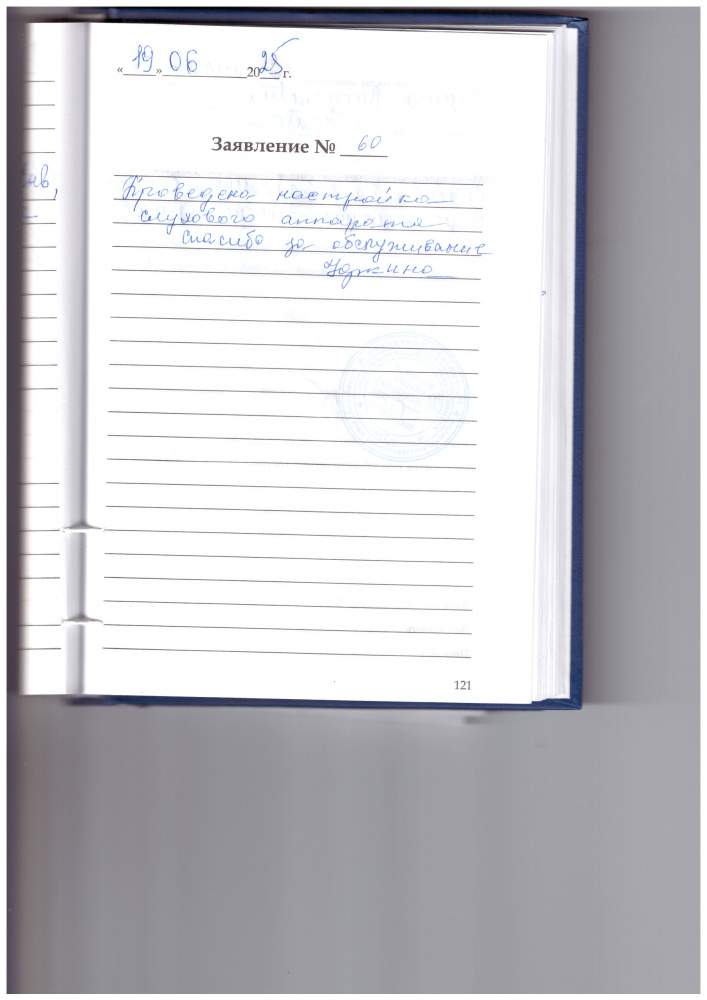 «19» 06 2025 г.
Заявление № 60
Проведена настройка
слухового аппарата
спасибо за обслуживание
121